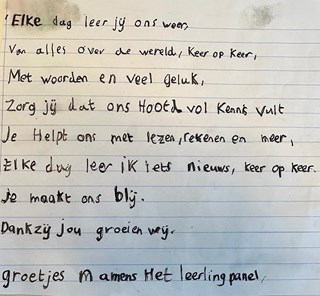 'Elke dag leer jij ons weer,
Van alles over de wereld, keer op keer,
Met woorden en veel geluk,
Zorg jij dat ons Hoofd vol kennis vult
Je Helpt ons met lezen, rekenen en meer,
Elke dag leer ik iets nieuws, keer op keer.
Je maakt ons blij.
Dankzij jou groeien wij.
groetjes namens Het leerlingpanel,